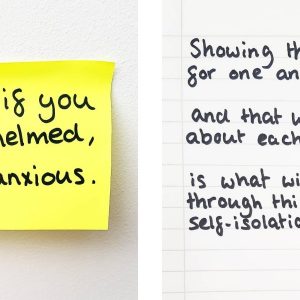 if you
helmed,
anxious.
Showing th
for one an
and that w
about each
is what wi
through thi
self-isolatio